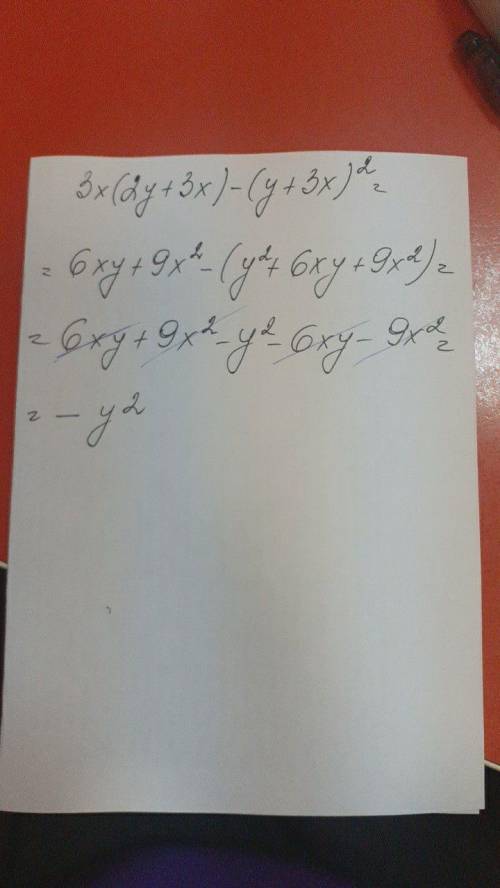 3x(2y+3x)-(y+3x)²=
= 6xy+9x²-(y²+6xy+9x²)=
= 6xy+9x²-y²-6xy-9x²=
= - y²